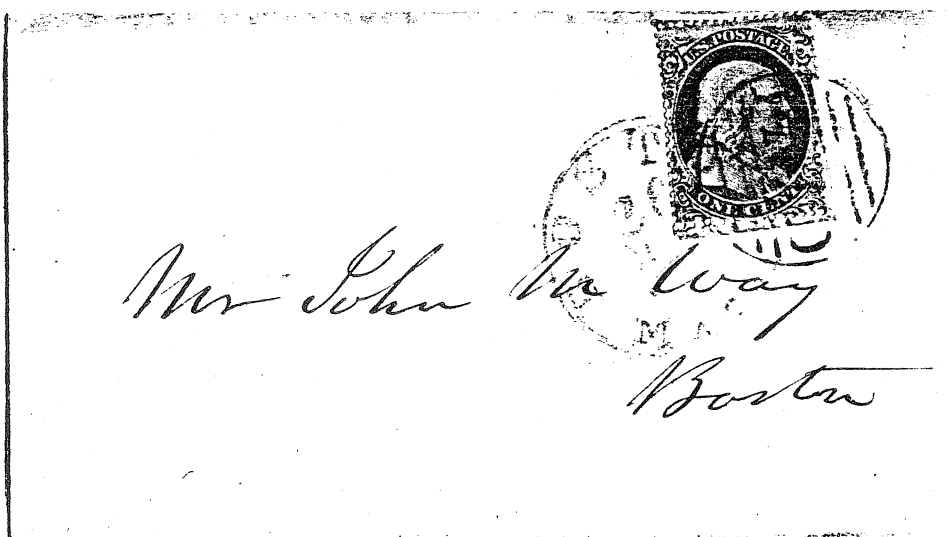 U.S. POSTAGE
ONE CENT
Mr John M Way
MA
Boston